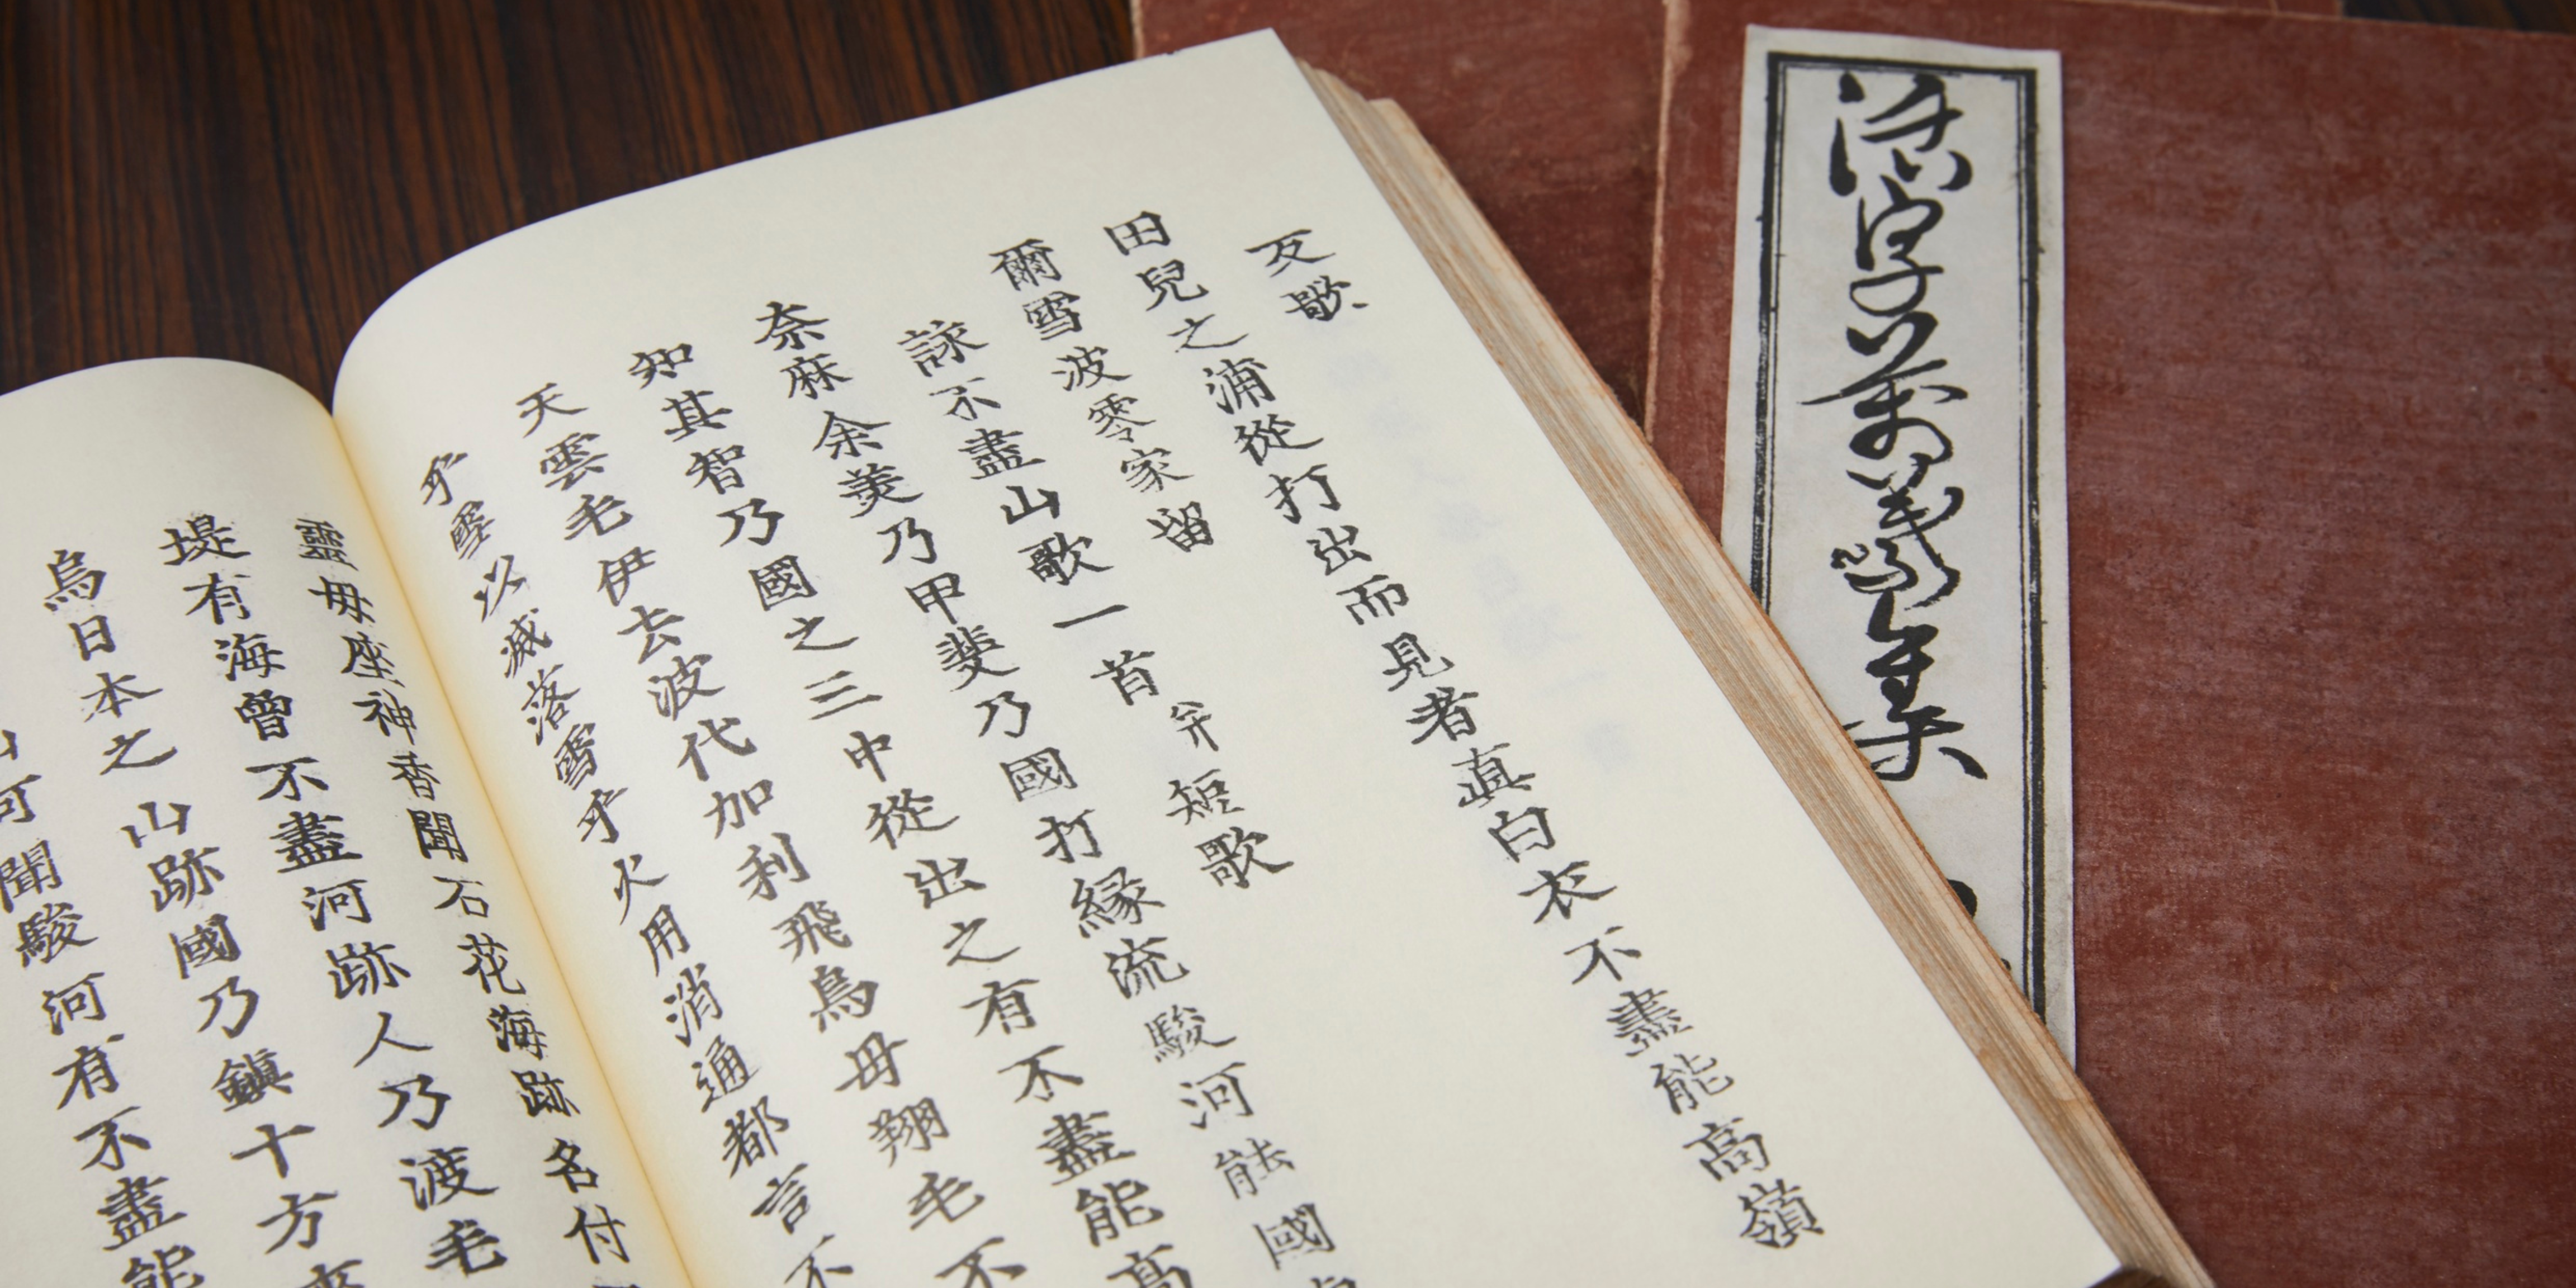 反歌
田兒之浦從打出而見者真白衣不盡能高嶺
爾雪波零家留
詠不盡山歌一首并短歌
奈麻余美乃甲斐乃國打縁流駿河能國
知其智乃國之三中從出之有不盡能高
天雲毛伊去波代加利飛鳥母翔毛不
乎雪以滅落雪乎火用消通都言不
靈母座神香聞石花海跡名付
堤有海曾不盡河跡人乃渡毛
烏日本之山跡國乃鎮十方
山可聞駿河有不盡能
活字萬葉集